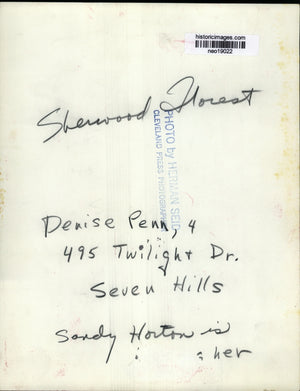 historicimages.com
neo19022
Sherwood Forest
PHOTO by HERMAN SEID
CLEVELAND PRESS PHOTOGRAPHER
Denise Penn, 4
495 Twilight Dr.
Seven Hills
Sandy Horton is
her